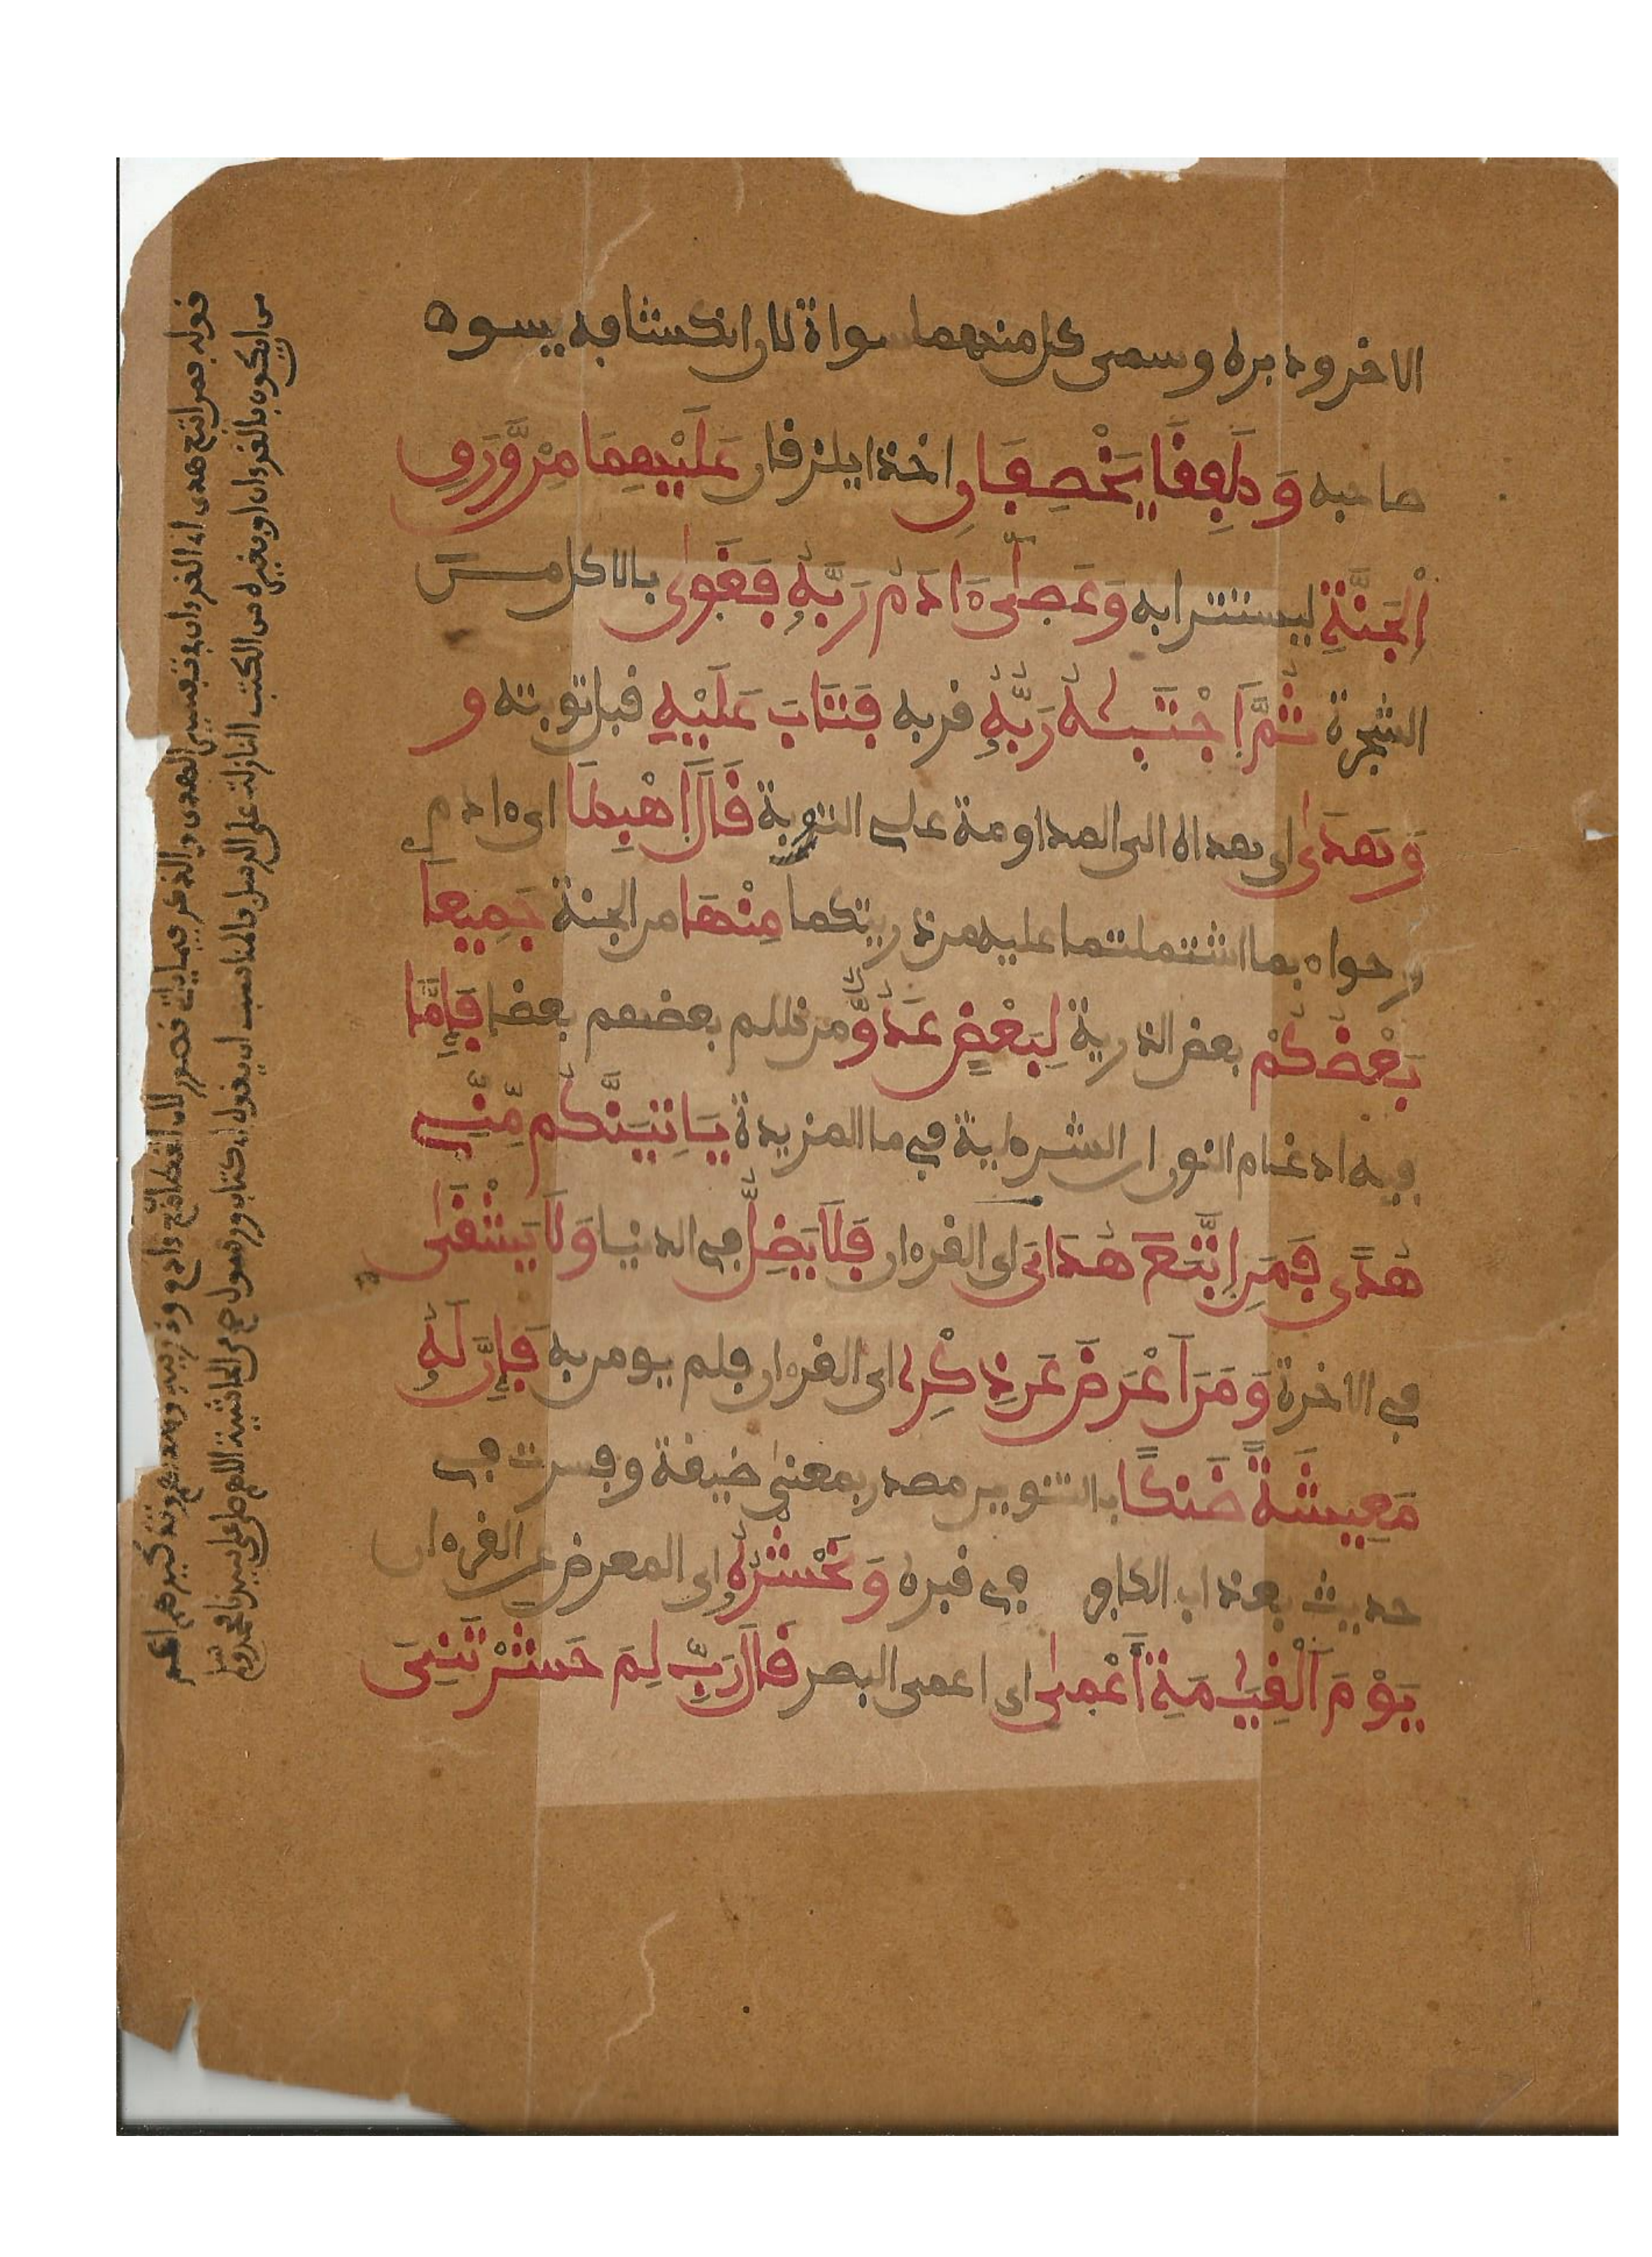 الاخر ودبره وسمى كل منهما سواة لان انكشافه يسوه
صاحبه وَطَفِقَا يَخْصِفَانِ اخذا يلزقان عَلَيْهِمَا مِنْ وَّرَقِ
اِ۬لْجَنَّةِ ليستترا به وَعَصىٰٓ ءَادَمُ رَبَّهُۥ فَغَوىٰ بالاكل من
الشجرة ثُمَّ اَ۪جْتَبٰهُ رَبُّهُۥ قربه فَتَابَ عَلَيْهِ قبل توبته و
وَهَدىٰ اى هداه الى المداومة على التوبة قَالَ اَ۪هْبِطَا اى ءادم
و حواء بما اشتملتما عليه من ذريتكما مِنْهَا من الجنة جَمِيعا
بَعْضُكُمْ بعض الذرية لِبَعْضٍ عَدُوٌّ من ظلم بعضهم بعضا فَإِمَّا
فيه ادغام النون ان الشرطية في ما المزيدة يَاتِيَنَّكُم مِّنِّے
هُدًى فَمَنِ اِ۪تَّبَعَ هُدَايَ اى القرءان فَلَا يَضِلُّ في الدنيا وَلَا يَشْقىٰ
في الاخرة وَمَنَ اَعْرَضَ عَن ذِكْرِے اى القرءان فلم يومن به فَإِنَّ لَهُۥ
مَعِيشَةً ضَنكًا بالتنوين مصدر بمعنى ضيقة وفسرت في
حديث بعذاب الكافر في قبره وَنَحْشُرُهُۥ اى المعرض عن القرءان
يَوْمَ اَ۬لْقِيَٰمَةِ أَعْمىٰ اى اعمى البصر قَالَ رَبِّ لِمَ حَشَرْتَنِيَ
قوله فمن اتبع هدى اى القرءان في تفسير الهدى والذكر فيما ياتي قصور لان الخطاب مع ءادم و ذريته وهداهم وتذكيرهم اعم
من ان يكون بالقرءان او بغيره من الكتب النازلة على الرسل فالمناسب ان يقول اى كتاب ورسول من الحاشية اللهم صل على سيدنا محمد